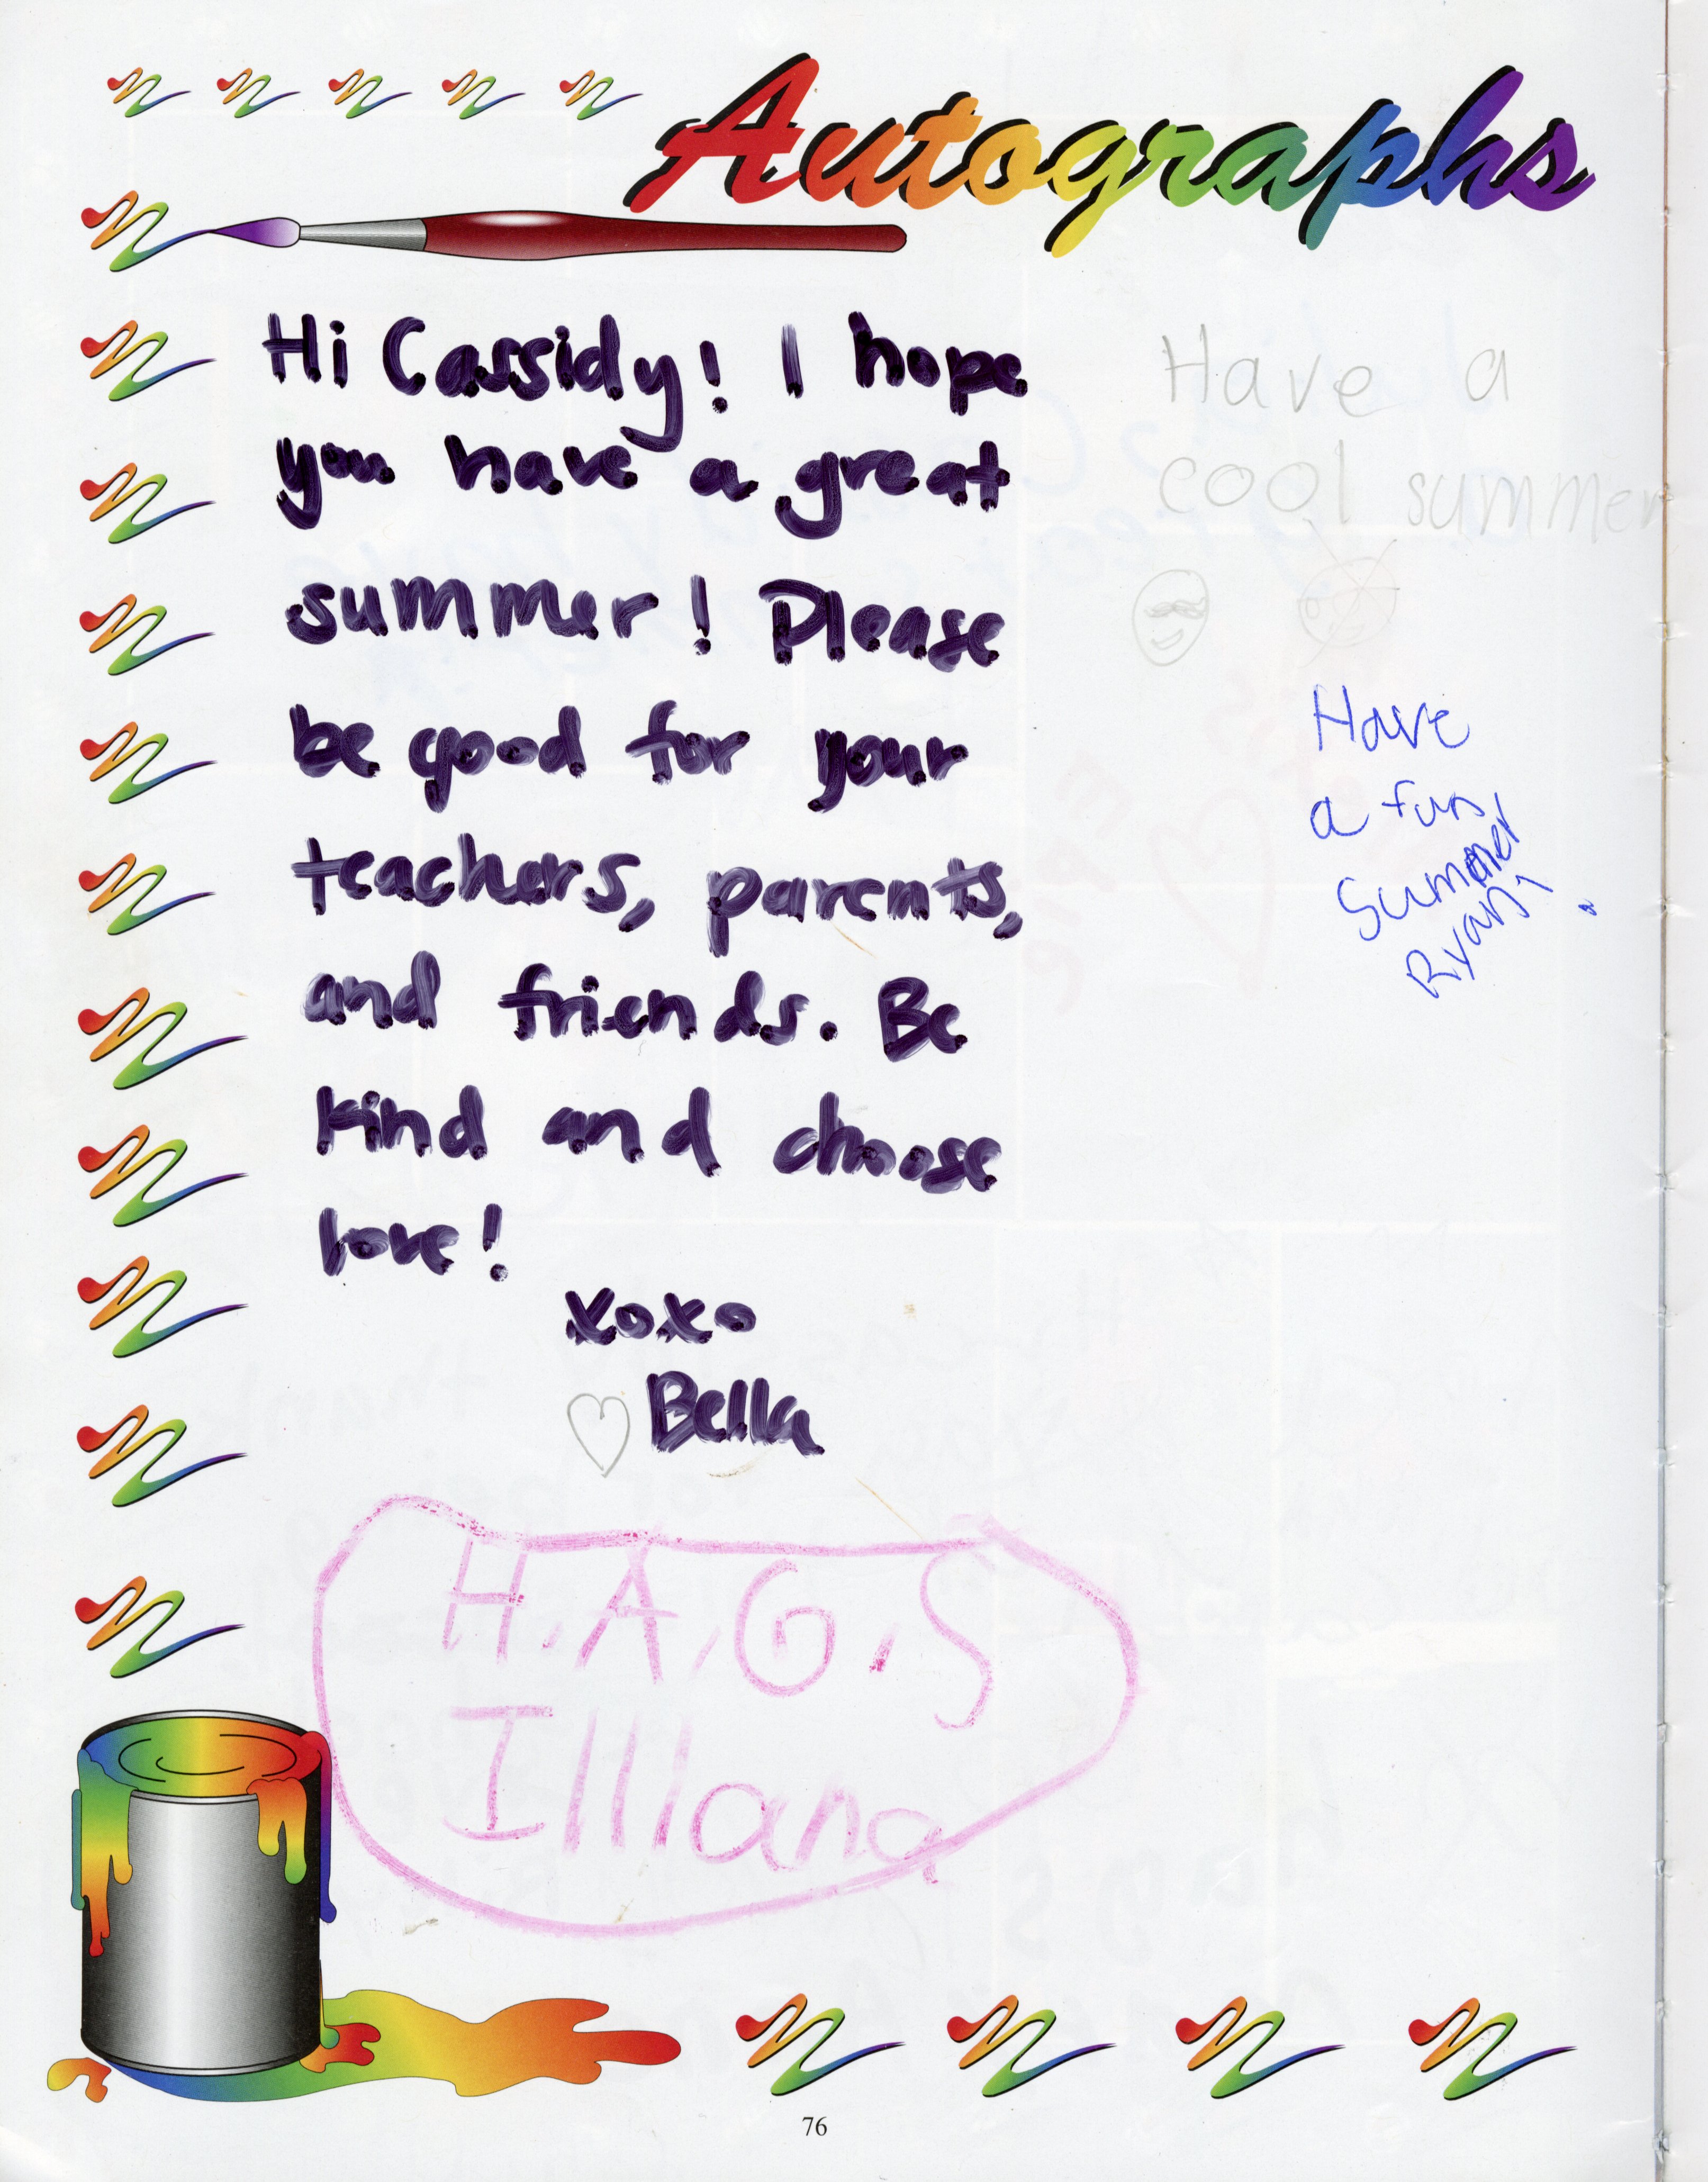 Autographs
Hi Cassidy! I hope
you have a great
summer! Please
be good for your
teachers, parents,
and friends. Be
kind and choose
love!
xoxo
Bella
Have a
cool summer
Have
a fun
Summer
Ryan!
H.A.G.S
Illiana
76